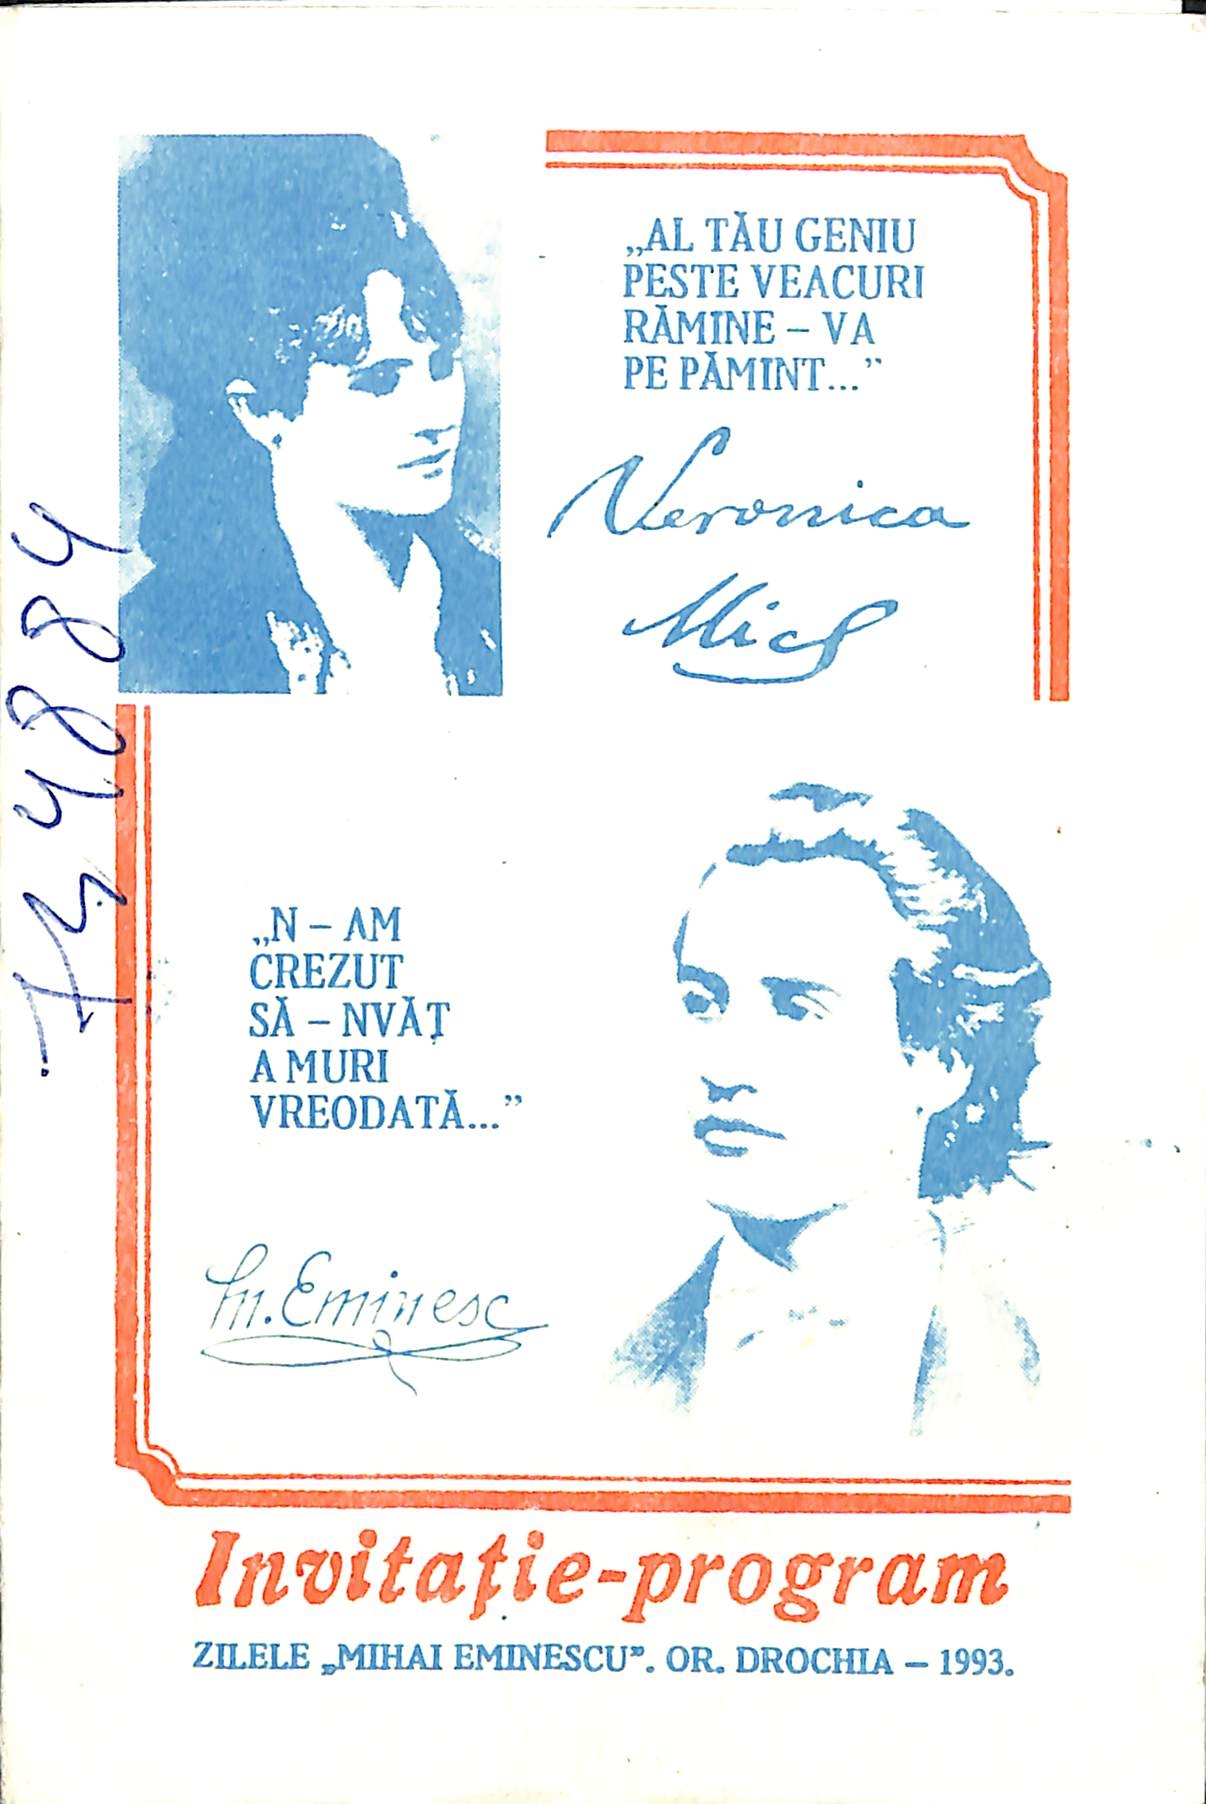 „AL TĂU GENIU
PESTE VEACURI
RĂMINE – VA
PE PĂMINT...”
Veronica
Micl
„N – AM
CREZUT
SĂ – NVĂȚ
A MURI
VREODATĂ...”
M. Eminesc
Invitație-program
ZILELE „MIHAI EMINESCU”. OR. DROCHIA – 1993.